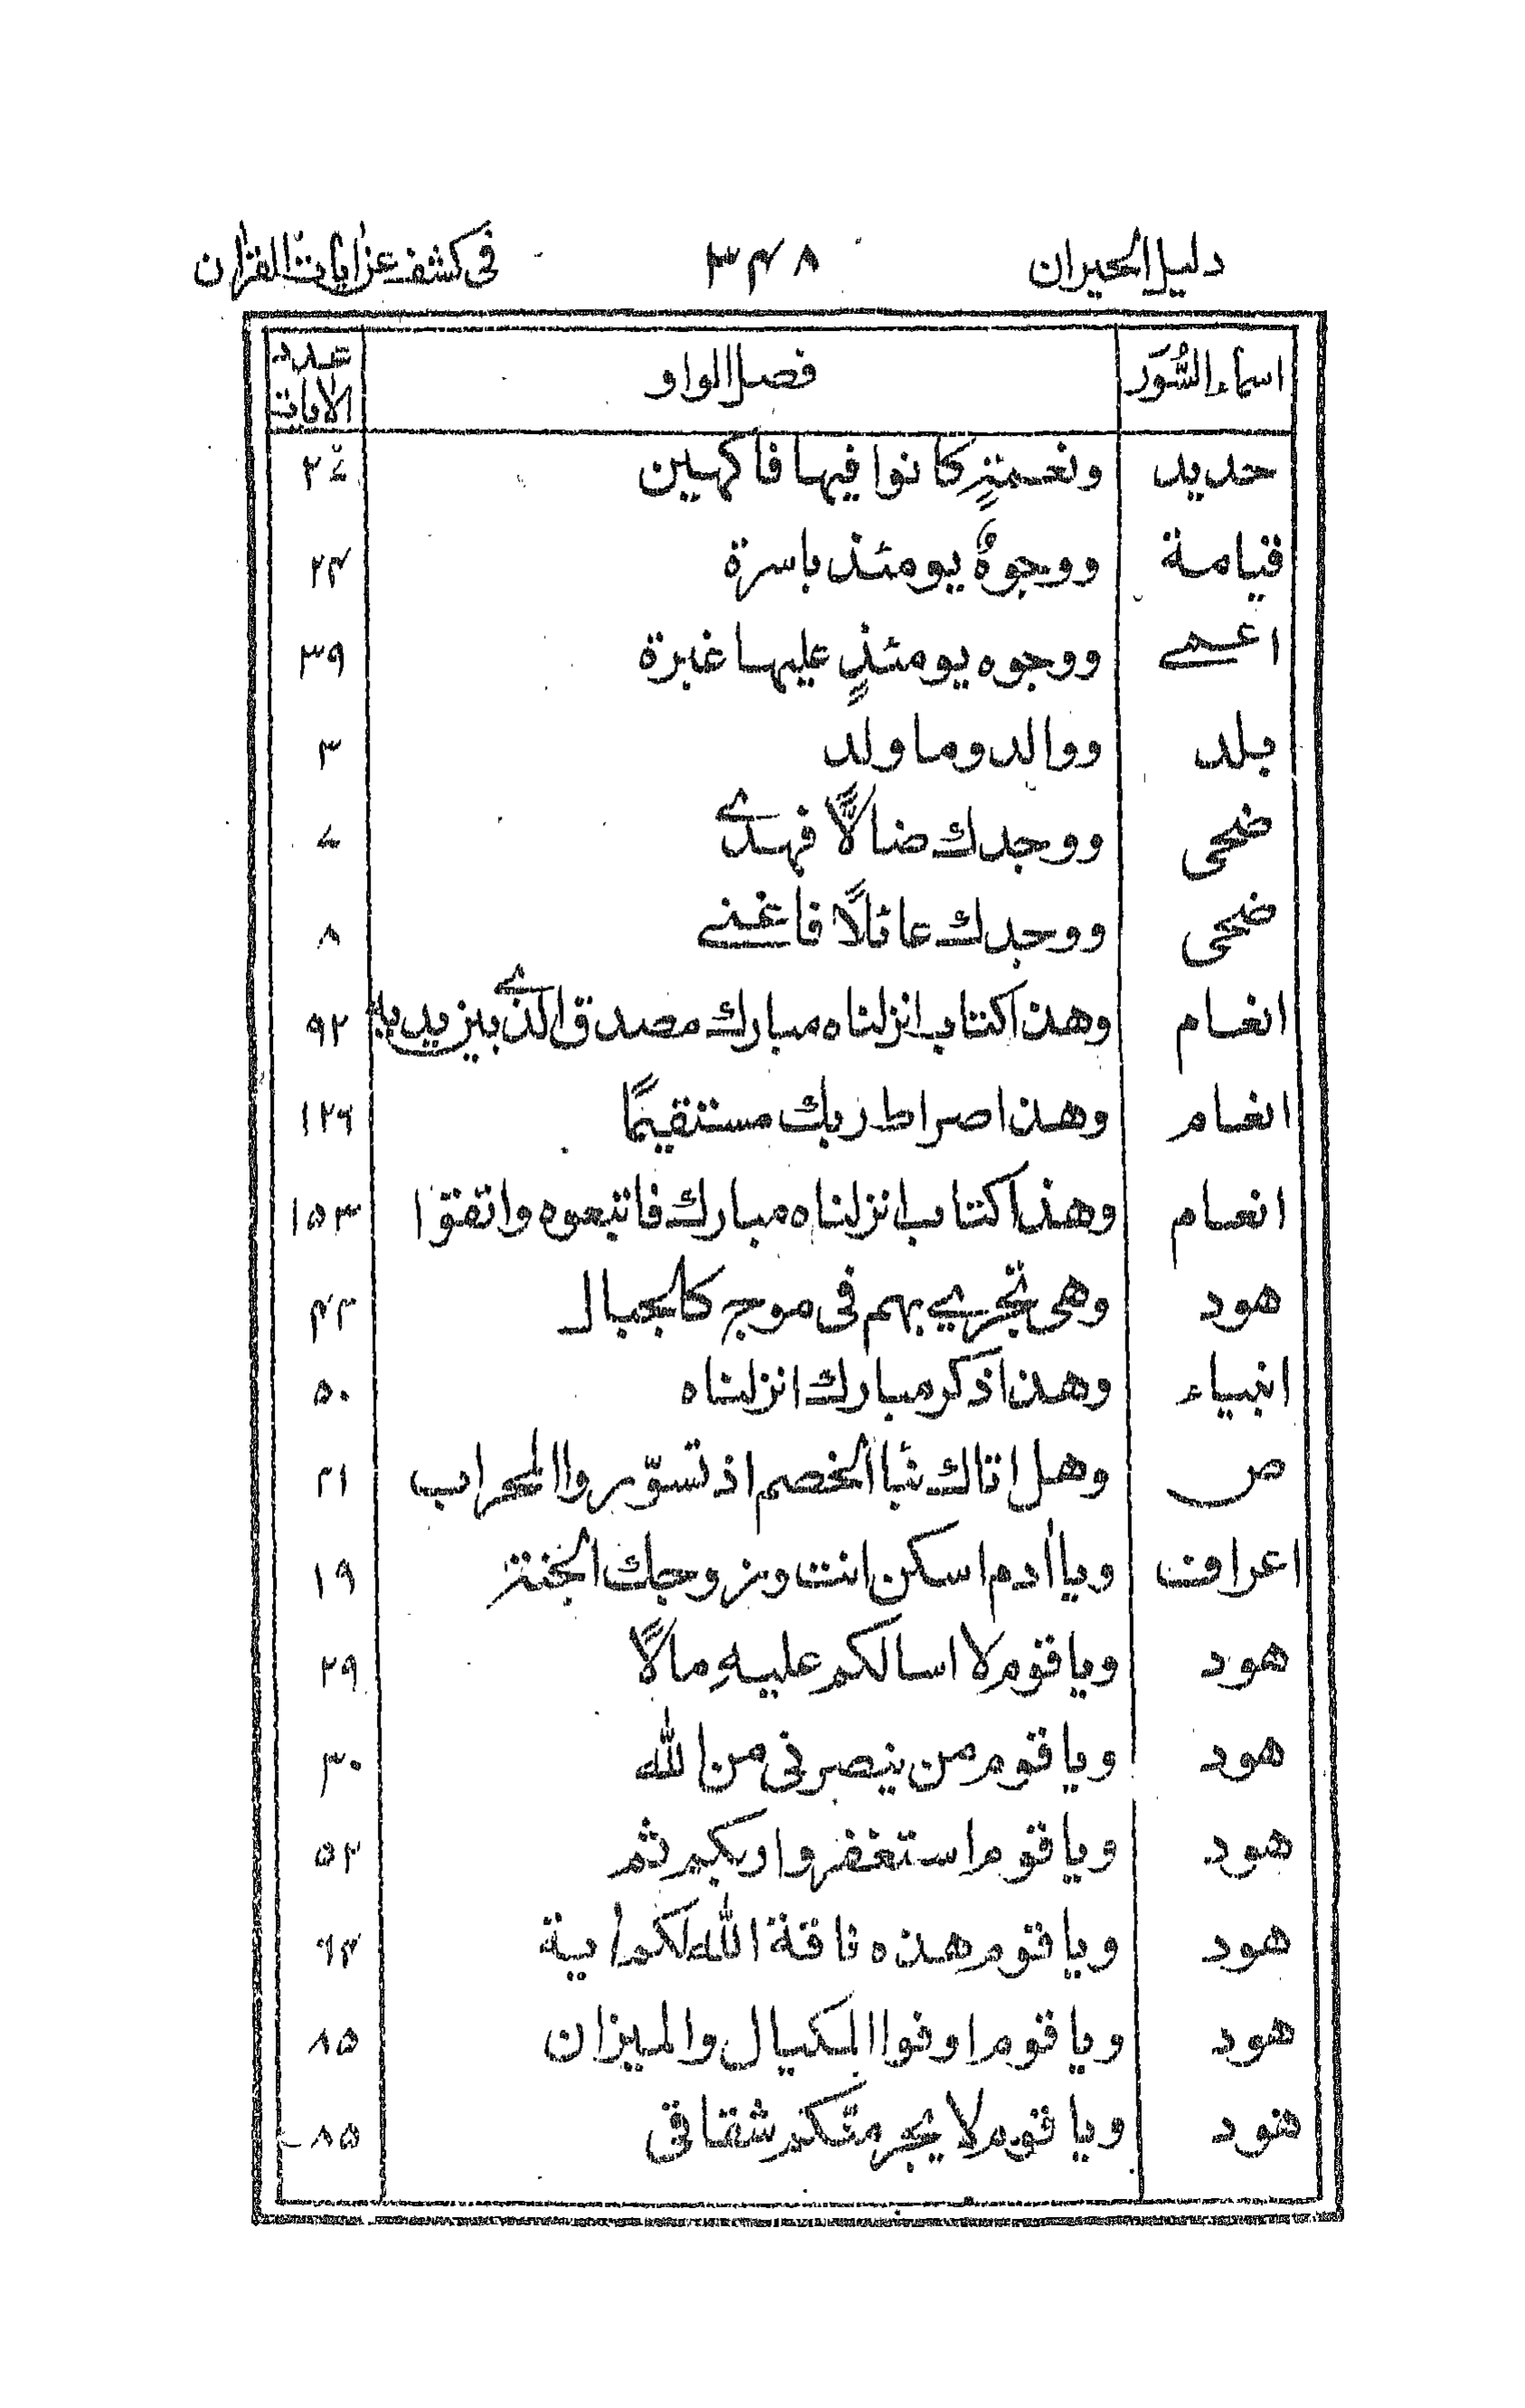 دليل الحيران ٣٤٨ فى كشف عن اٰيات القرآن
اسماء السُّوَر فصل الواو عدد الايات
حديد ونعمةٍ كانوا فيها فاكهين ٢٤
قيامة ووجوهٌ يومئذ باسرة ٢٤
اعمے ووجوه يومئذٍ عليها غبرة ٣٩
بلد ووالد وما ولد ٣
ضحى ووجدك ضالًّا فهدے ٧
ضحى ووجدك عائلًا فاغنے ٨
انعام وهذا كتاب انزلناه مبارك مصدق الذے بين يديه ٩٢
انعام وهذا صراط ربك مستقيمًا ١٢٦
انعام وهذا كتاب انزلناه مبارك فاتبعوه واتقوا ١٥٣
هود وهى تجرے بهم فى موج كالجبال ٤٢
انبياء وهذا ذكر مبارك انزلناه ٥٠
ص وهل اتاك نبا الخصم اذ تسوّروا المحراب ٢١
اعراف ويا اٰدم اسكن انت وزوجك الجنة ١٩
هود ويا قوم لا اسالكم عليهِ مالًا ٢٩
هود ويا قوم من ينصرنى من الله ٣٠
هود ويا قوم استغفروا ربكم ثم ٥٢
هود ويا قوم هذه ناقة الله لكم اٰية ٦٤
هود ويا قوم اوفوا المكيال والميزان ٨٥
هود ويا قوم لا يجرمنّكم شقاقى ٨٥